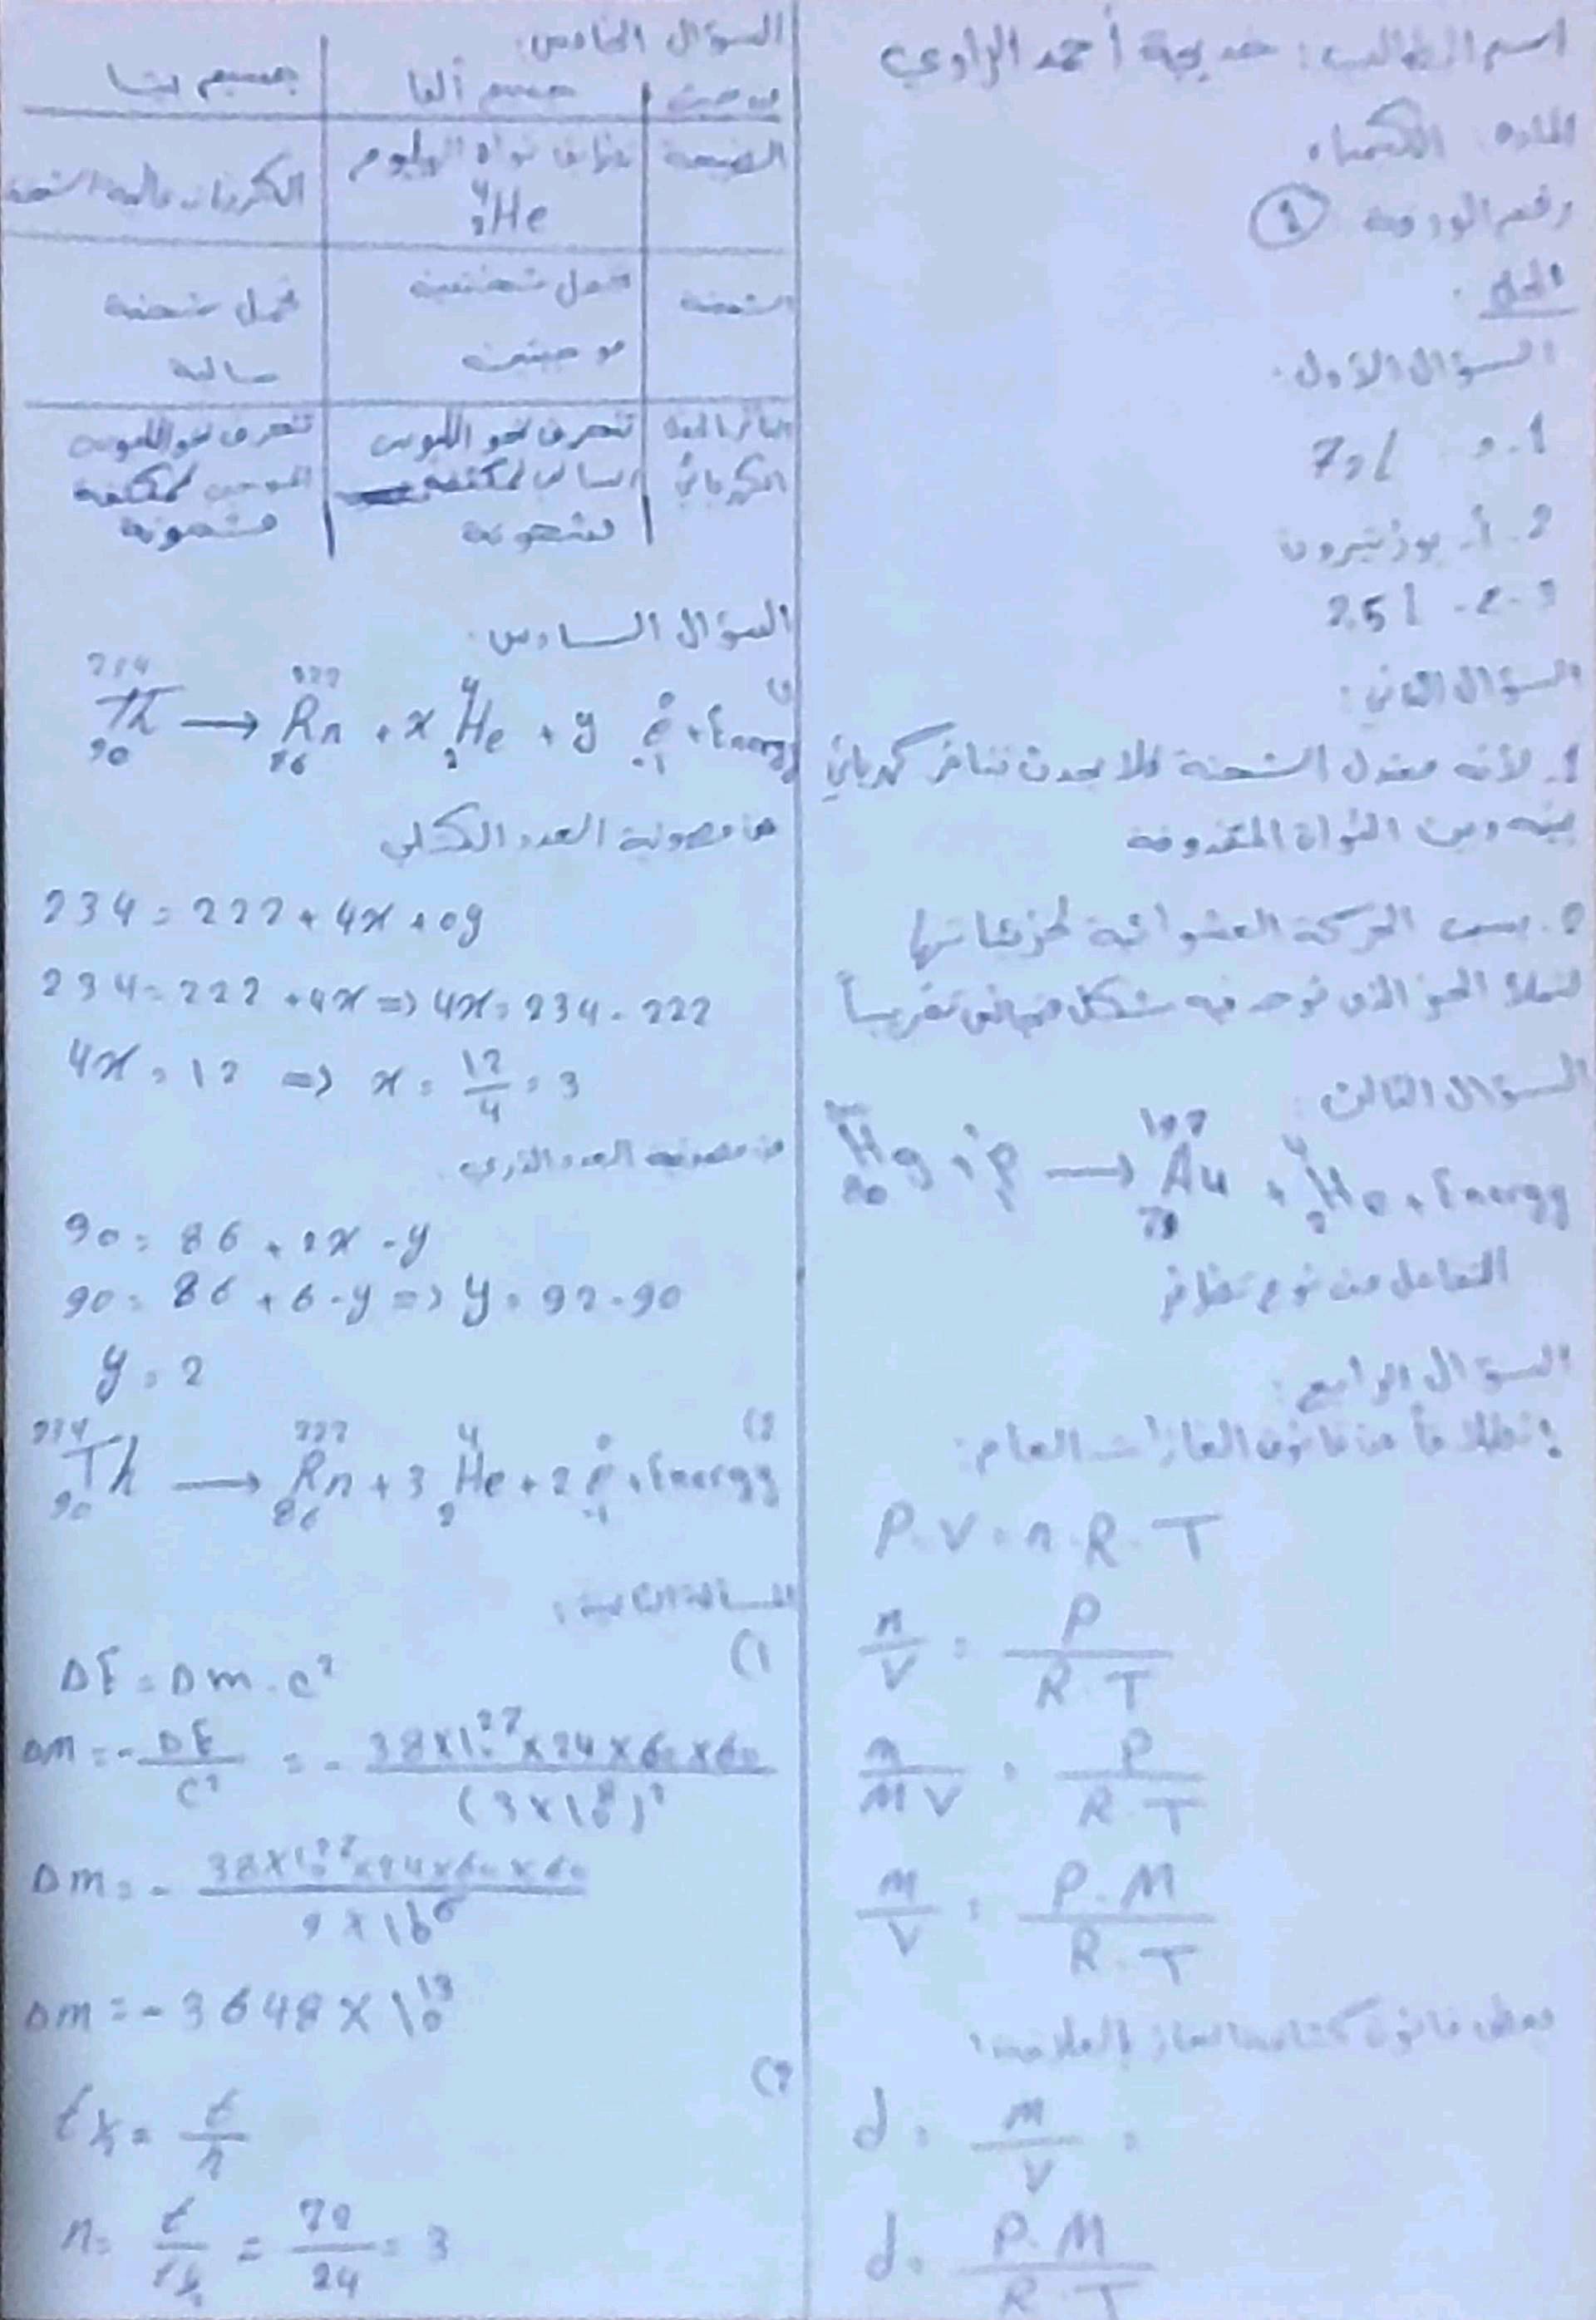 اسم الطالب: خديجة أحمد الراوي
المادة: الكيمياء
رقم الورقة ①
الحل:
السؤال الأول:
1. د
2. أ. بوزيترون
2.5 l
السؤال الثاني:
1. لأنه معتدل الشحنة فلا يحدث تنافر كهربائي
بينه وبين النواة المقذوفة
2. بسبب الحركة العشوائية لجزيئاتها
لتملأ الحيز الذي توجد فيه بشكل متجانس تقريباً
السؤال الثالث:
₈₀Hg + ¹₁p → ¹⁹⁷₇₉Au + ⁴₂He + Energy
التفاعل من نوع تطافر
السؤال الرابع:
انطلاقاً من قانون الغازات العام:
P.V = n.R.T
n/V = P/(R.T)
m/(M V) = P/(R.T)
m/V = (P.M)/(R.T)
يعطى قانون كثافة الغاز بالعلاقة:
d = m/V =
d = (P.M)/(R.T)
السؤال الخامس:
من حيث | جسيم ألفا | جسيم بيتا
الطبيعة | تطابق نواة الهيليوم ⁴₂He | الكترونات عالية السرعة
الشحنة | تحمل شحنتين موجبتين | تحمل شحنة سالبة
التأثر بالحقل الكهربائي | تنحرف نحو اللبوس السالب لمكثفة مشحونة | تنحرف نحو اللبوس الموجب لمكثفة مشحونة
السؤال السادس:
1) ²³⁴₉₀Th → ²²²₈₆Rn + x ⁴₂He + y ⁰₋₁e + Energy
من مصونية العدد الكتلي
234 = 222 + 4x + 0y
234 = 222 + 4x => 4x = 234 - 222
4x = 12 => x = 12/4 = 3
من مصونية العدد الذري
90 = 86 + 2x - y
90 = 86 + 6 - y => y = 92 - 90
y = 2
2) ²³⁴₉₀Th → ²²²₈₆Rn + 3 ⁴₂He + 2 ⁰₋₁e + Energy
المسألة الثانية:
1)
ΔE = Δm.c²
Δm = - ΔE/c² = - (38×10²⁷×24×60×60)/(3×10⁸)²
Δm = - (38×10²⁷×24×60×60)/(9×10¹⁶)
Δm = - 3648 × 10¹³
2)
t½ = t/n
n = t/t½ = 72/24 = 3